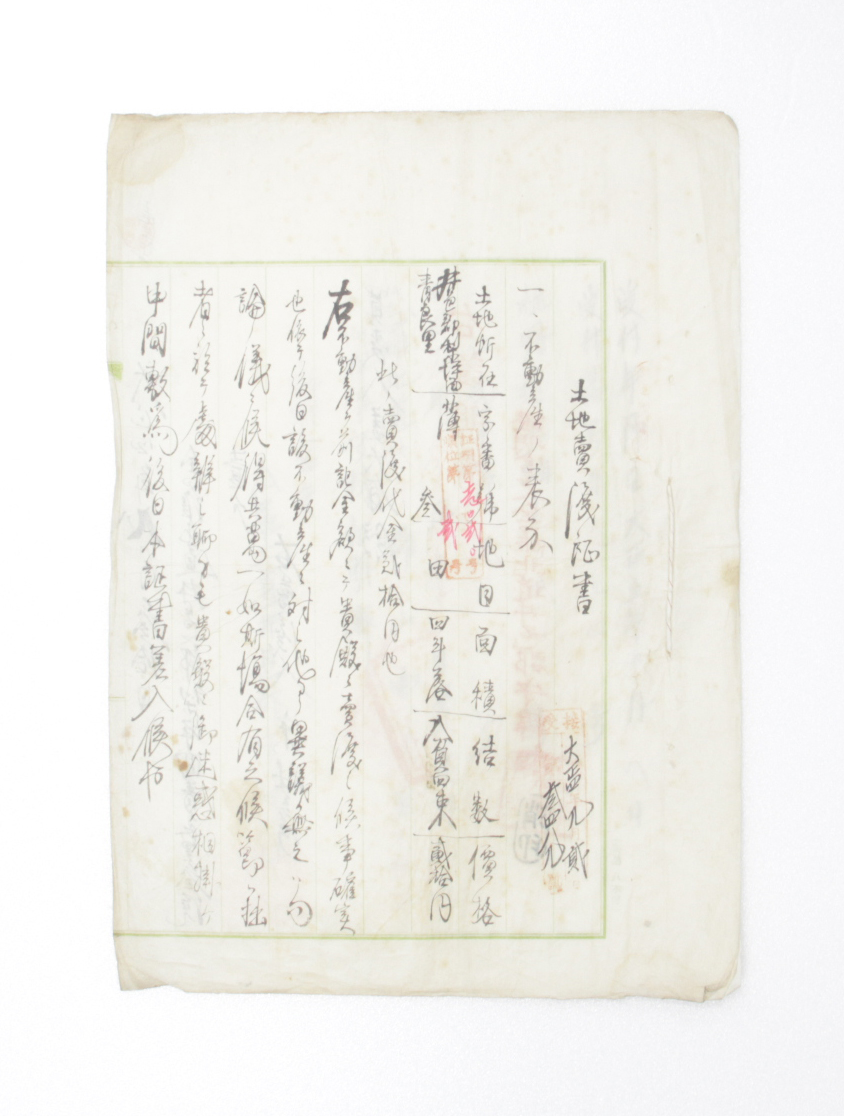 土地賣渡证書
一、不動産ノ表示
土地所在 字番號 地目 面積 結數 價格
青良里 薄 叄 田 四斗落 八負四束 貳拾円
此ノ賣渡代金貳拾円也
右不動産ヲ前記金額ニテ貴殿ニ賣渡シ候事確実
也依テ後日該不動産ニ対シ他ヨリ異議無之ハ勿
論ノ儀ニ候得共萬一如斯場合有之候節ハ拙
者ニ於テ處辨シ聊カモ貴殿ニ御迷惑相掛ケ
申間敷為後日本証書差入候也